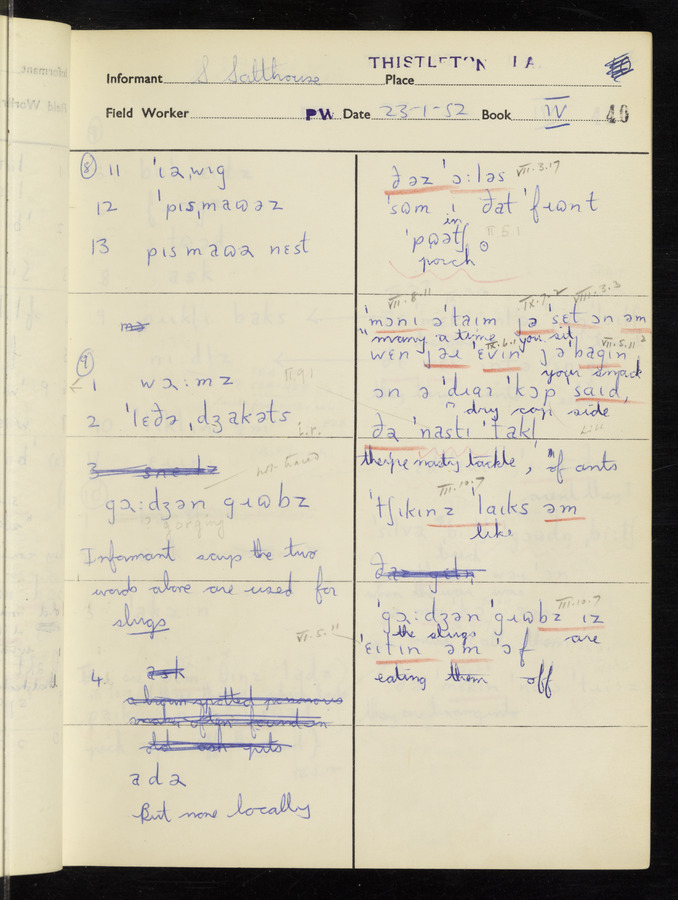 Informant S Salthouse
THISTLETON LA.
Place
Field Worker PW Date 23-1-52 Book IV 40
⑧ 11 ˈɪəˌwɪg
12 ˈpɪsˌmaɷəz
13 pɪsmaɷə nɛst
⑨
1 wɔ:mz IV.9.1
2 ˈlɛðəˌdʒakəts i.r.
3
gɔ:dʒən gɹɷbz
? gorging
Informant says the two
words above are used for
slugs
4. ask
a brown spotted poisonous
creature often found in
old ash pits
adə
But none locally
ðəz ˈɔ:ləs VII.3.17
ˈsɷm ɪ ðat ˈfɹɷnt
in
ˈpɷətʃ V.5.1
porch
VII.8.11 IX.7.2 VIII.3.3
ˈmɔnɪ əˈtaɪm jəˈsɛt ɔn əm
"many a time you sit
IX.6.1 VII.5.11
wɛn jəɹ ˈɛvɪn jəˈbagɪn
your snack
ɔn ə ˈdɹaɪ ˈkɔp said,
" dry cop side
ðə ˈnastɪ ˈtakl
they're nasty tackle, of ants
III.10.7
ˈtʃɪkɪnz ˈlaɪks əm
like
III.10.7
ˈgɔ:dʒən ˈgɹɷbz ɪz
the slugs are
VI.5.11
ˈɛɪtɪn əm ˈɔf
eating them off